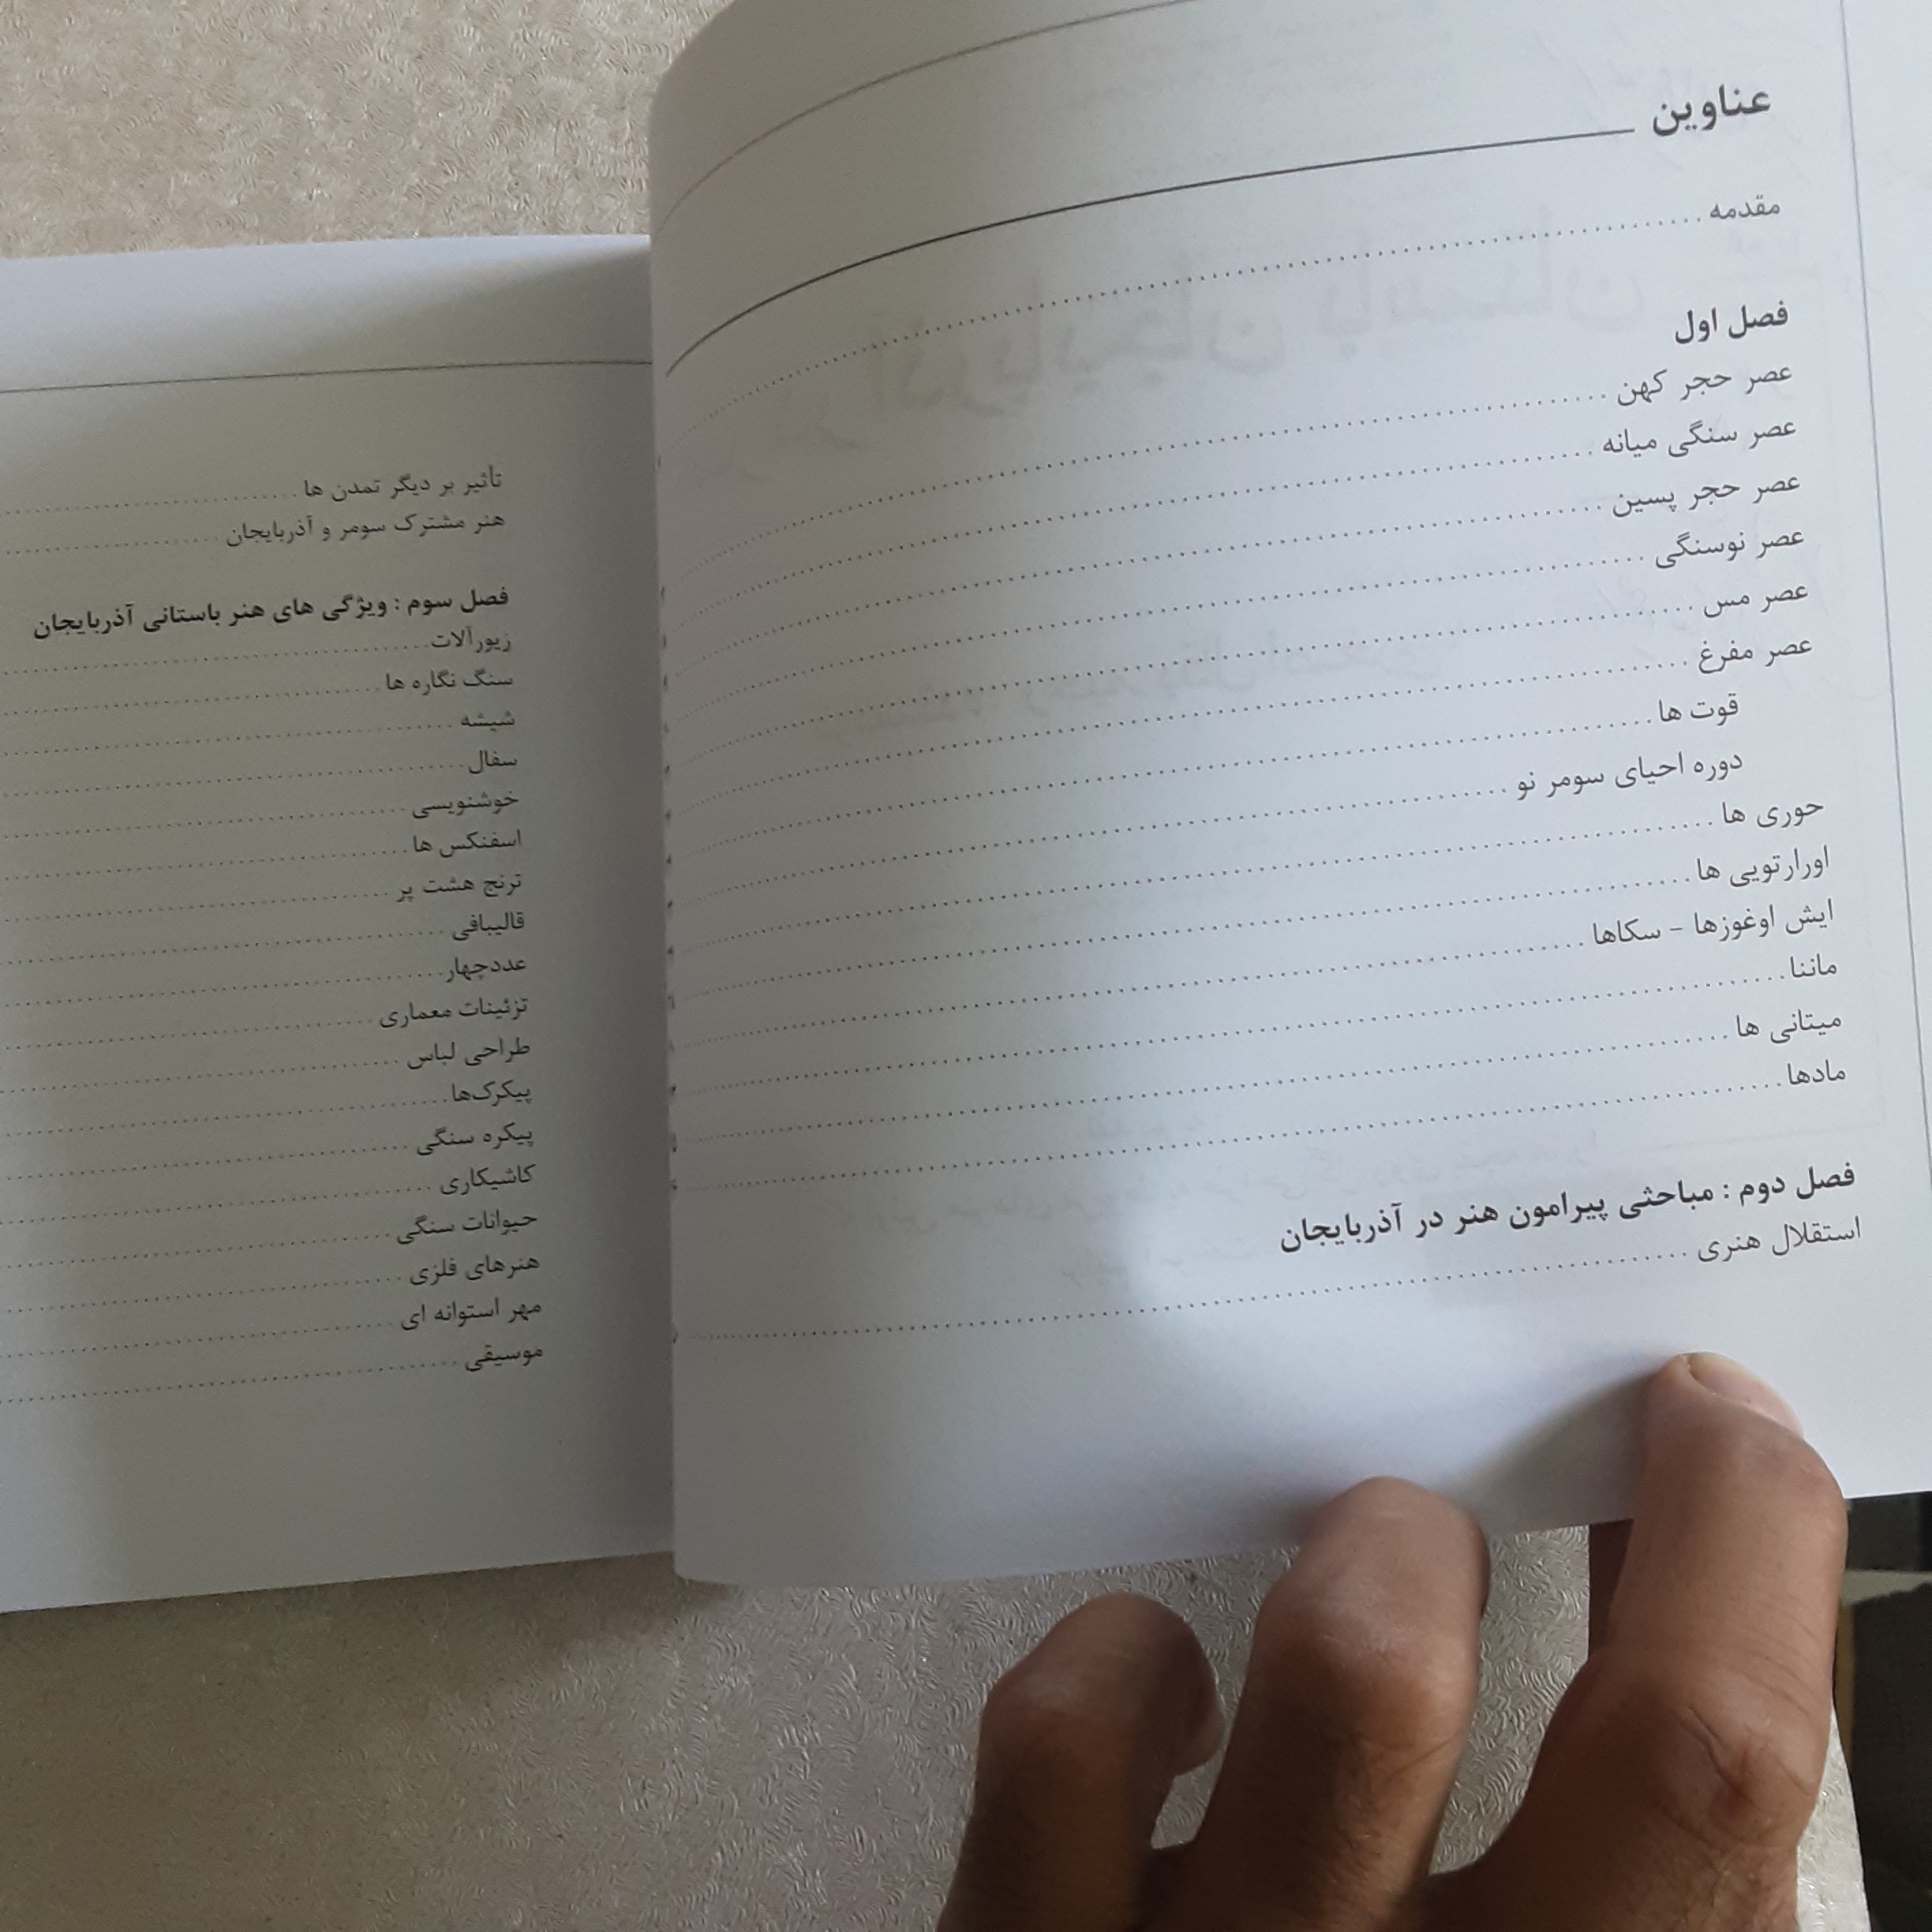 عناوین
مقدمه
فصل اول
عصر حجر کهن
عصر سنگی میانه
عصر حجر پسین
عصر نوسنگی
عصر مس
عصر مفرغ
قوت ها
دوره احیای سومر نو
حوری ها
اورارتویی ها
ایش اوغوزها - سکاها
ماننا
میتانی ها
مادها
فصل دوم : مباحثی پیرامون هنر در آذربایجان
استقلال هنری
تأثیر بر دیگر تمدن ها
هنر مشترک سومر و آذربایجان
فصل سوم : ویژگی های هنر باستانی آذربایجان
زیورآلات
سنگ نگاره ها
شیشه
سفال
خوشنویسی
اسفنکس ها
ترنج هشت پر
قالیبافی
عددچهار
تزئینات معماری
طراحی لباس
پیکرک‌ها
پیکره سنگی
کاشیکاری
حیوانات سنگی
هنرهای فلزی
مهر استوانه ای
موسیقی